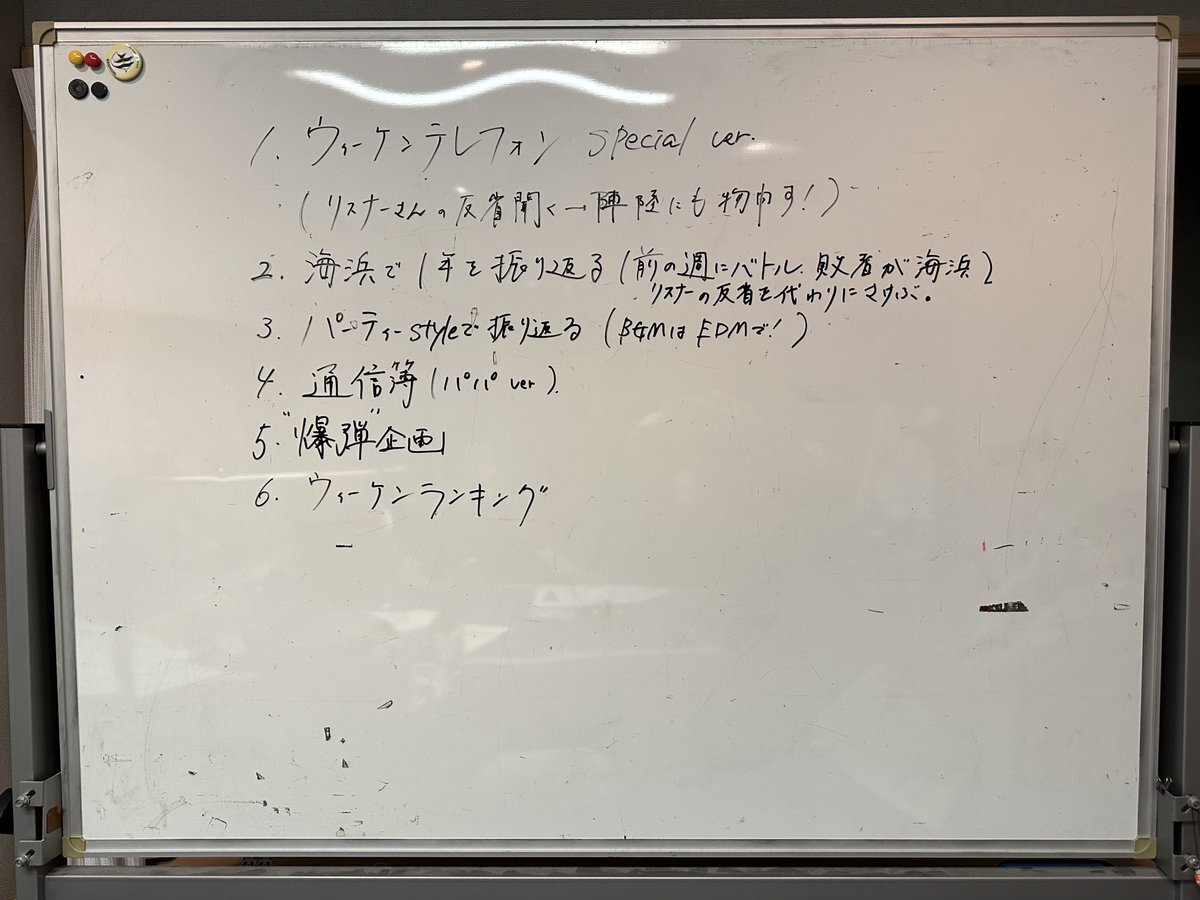 1. ウィーケンテレフォン special ver.
(リスナーさんの反省聞く→陣陸にも物申す!)
2. 海浜で1年を振り返る(前の週にバトル、敗者が海浜)
リスナーの反省を代わりにさけぶ。
3. パーティーstyleで振り返る(BGMはEDMで!)
4. 通信簿(パパver).
5. "爆弾"企画
6. ウィーケンランキング